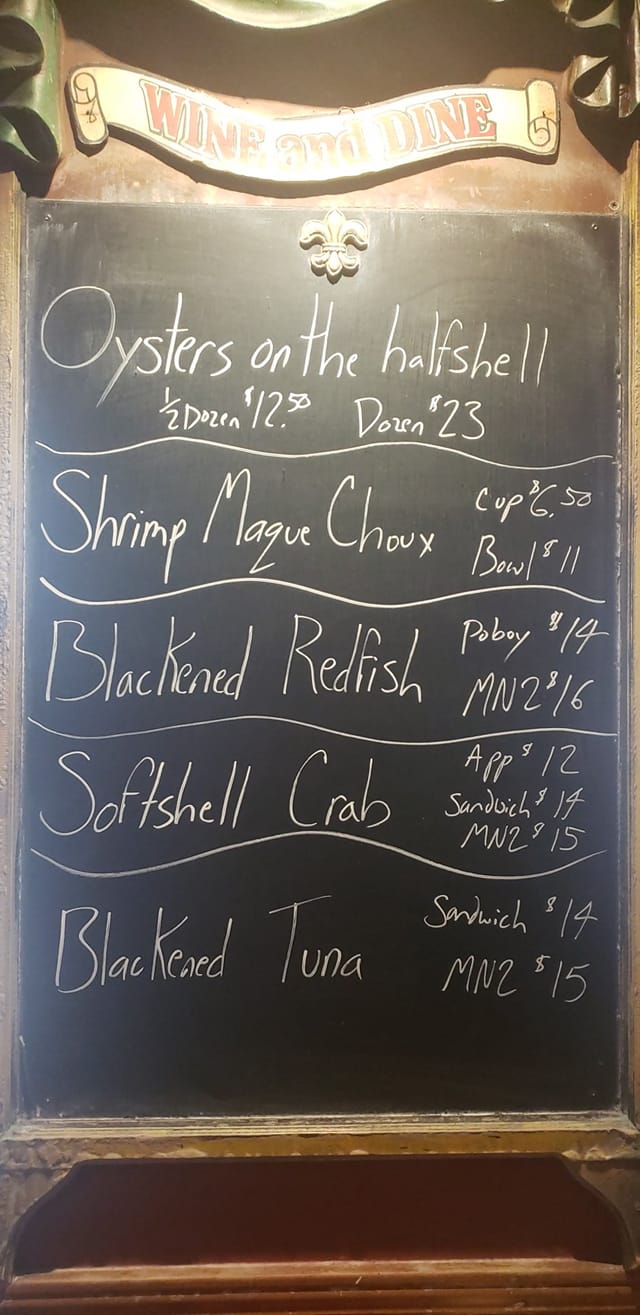 WINE and DINE
Oysters on the halfshell
1/2 Dozen $12.50 Dozen $23
Shrimp Maque Choux
Cup $6.50
Bowl $11
Blackened Redfish
Poboy $14
MN2 $16
Softshell Crab
App $12
Sandwich $14
MN2 $15
Blackened Tuna
Sandwich $14
MN2 $15